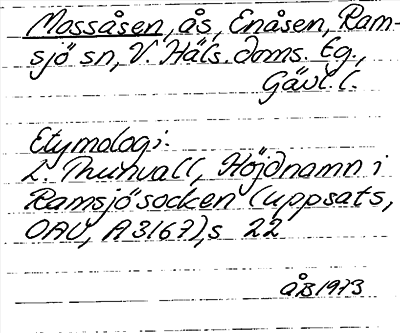 Mossåsen, ås, Enåsen, Ram-
sjö sn, V. Häls. doms. Eg.,
Gävl. l.
Etymologi:
L. Thunvall, Höjdnamn i
Ramsjö socken (uppsats,
OAU, A3167), s 22
åB 1973